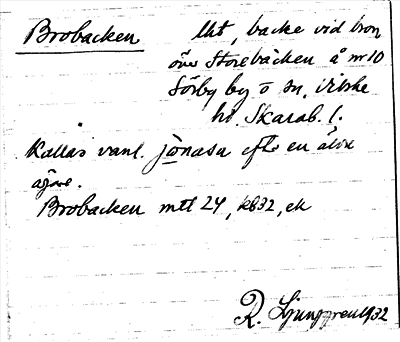 Brobacken Ukt, backe vid bron
över Storebäcken å nr 10
Sörby by o sn, Vilske
hd. Skarab. l.
Kallas vanl. jönasa efter en äldre
ägare.
Brobacken mtl 24, kb32, ek
R. Ljunggren 1932